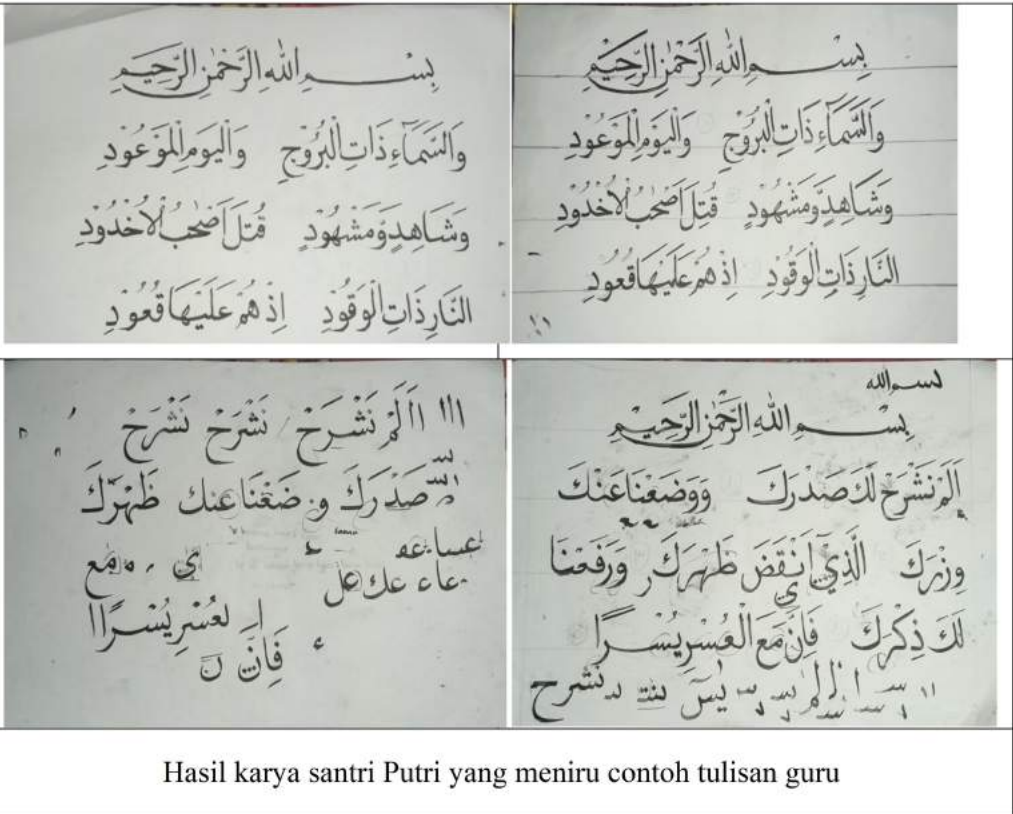 بِسْمِ اللهِ الرَّحْمٰنِ الرَّحِيْمِ
وَالسَّمَآءِ ذَاتِ الْبُرُوْجِ وَالْيَوْمِ الْمَوْعُوْدِ
وَشَاهِدٍ وَّمَشْهُوْدٍ قُتِلَ اَصْحٰبُ الْاُخْدُوْدِ
النَّارِ ذَاتِ الْوَقُوْدِ اِذْ هُمْ عَلَيْهَا قُعُوْدٌ
بِسْمِ اللهِ الرَّحْمٰنِ الرَّحِيْمِ
وَالسَّمَآءِ ذَاتِ الْبُرُوْجِ وَالْيَوْمِ الْمَوْعُوْدِ
وَشَاهِدٍ وَّمَشْهُوْدٍ قُتِلَ اَصْحٰبُ الْاُخْدُوْدِ
النَّارِ ذَاتِ الْوَقُوْدِ اِذْ هُمْ عَلَيْهَا قُعُوْدٌ
ااا اَلَمْ نَشْرَحْ نَشْرَحْ نَشْرَحْ
صَدْرَكَ وَ ضَعْنَا عنك ظَهْرَكَ
ي مع
لعُسْرِ يُسْرًاا
فَاِنَّ ن
بسم الله
بِسْمِ اللهِ الرَّحْمٰنِ الرَّحِيْمِ
اَلَمْ نَشْرَحْ لَكَ صَدْرَكَ وَوَضَعْنَا عَنْكَ
وِزْرَكَ الَّذِيْٓ اَنْقَضَ ظَهْرَكَ وَرَفَعْنَا
لَكَ ذِكْرَكَ فَاِنَّ مَعَ الْعُسْرِ يُسْرًا
نشرح
Hasil karya santri Putri yang meniru contoh tulisan guru